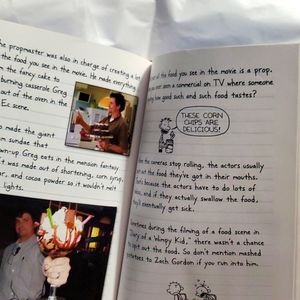 the propmaster was also in charge of creating a lot
the food you see in the movie. He made everything
the fancy cake to
burning casserole Greg
out of the oven in the
Ec scene.
o made the giant
m sundae that
own-up Greg eats in the mension fantasy
was made out of shortening, corn syrup,
ar, and cocoa powder so it wouldn't melt
lights.
of the food you see in the movie is a prop.
ever seen a commercial on TV where someone
ing how good such and such food tastes?
THESE CORN
CHIPS ARE
DELICIOUS!
the cameras stop rolling, the actors usually
out the food they've got in their mouths.
because the actors have to do lots of
and if they actually swallow the food,
eventually get sick.
Sometimes during the filming of a food scene in
Diary of a Wimpy Kid," there wasn't a chance
to spit out the food. So don't mention mashed
potatoes to Zach Gordon if you run into him.